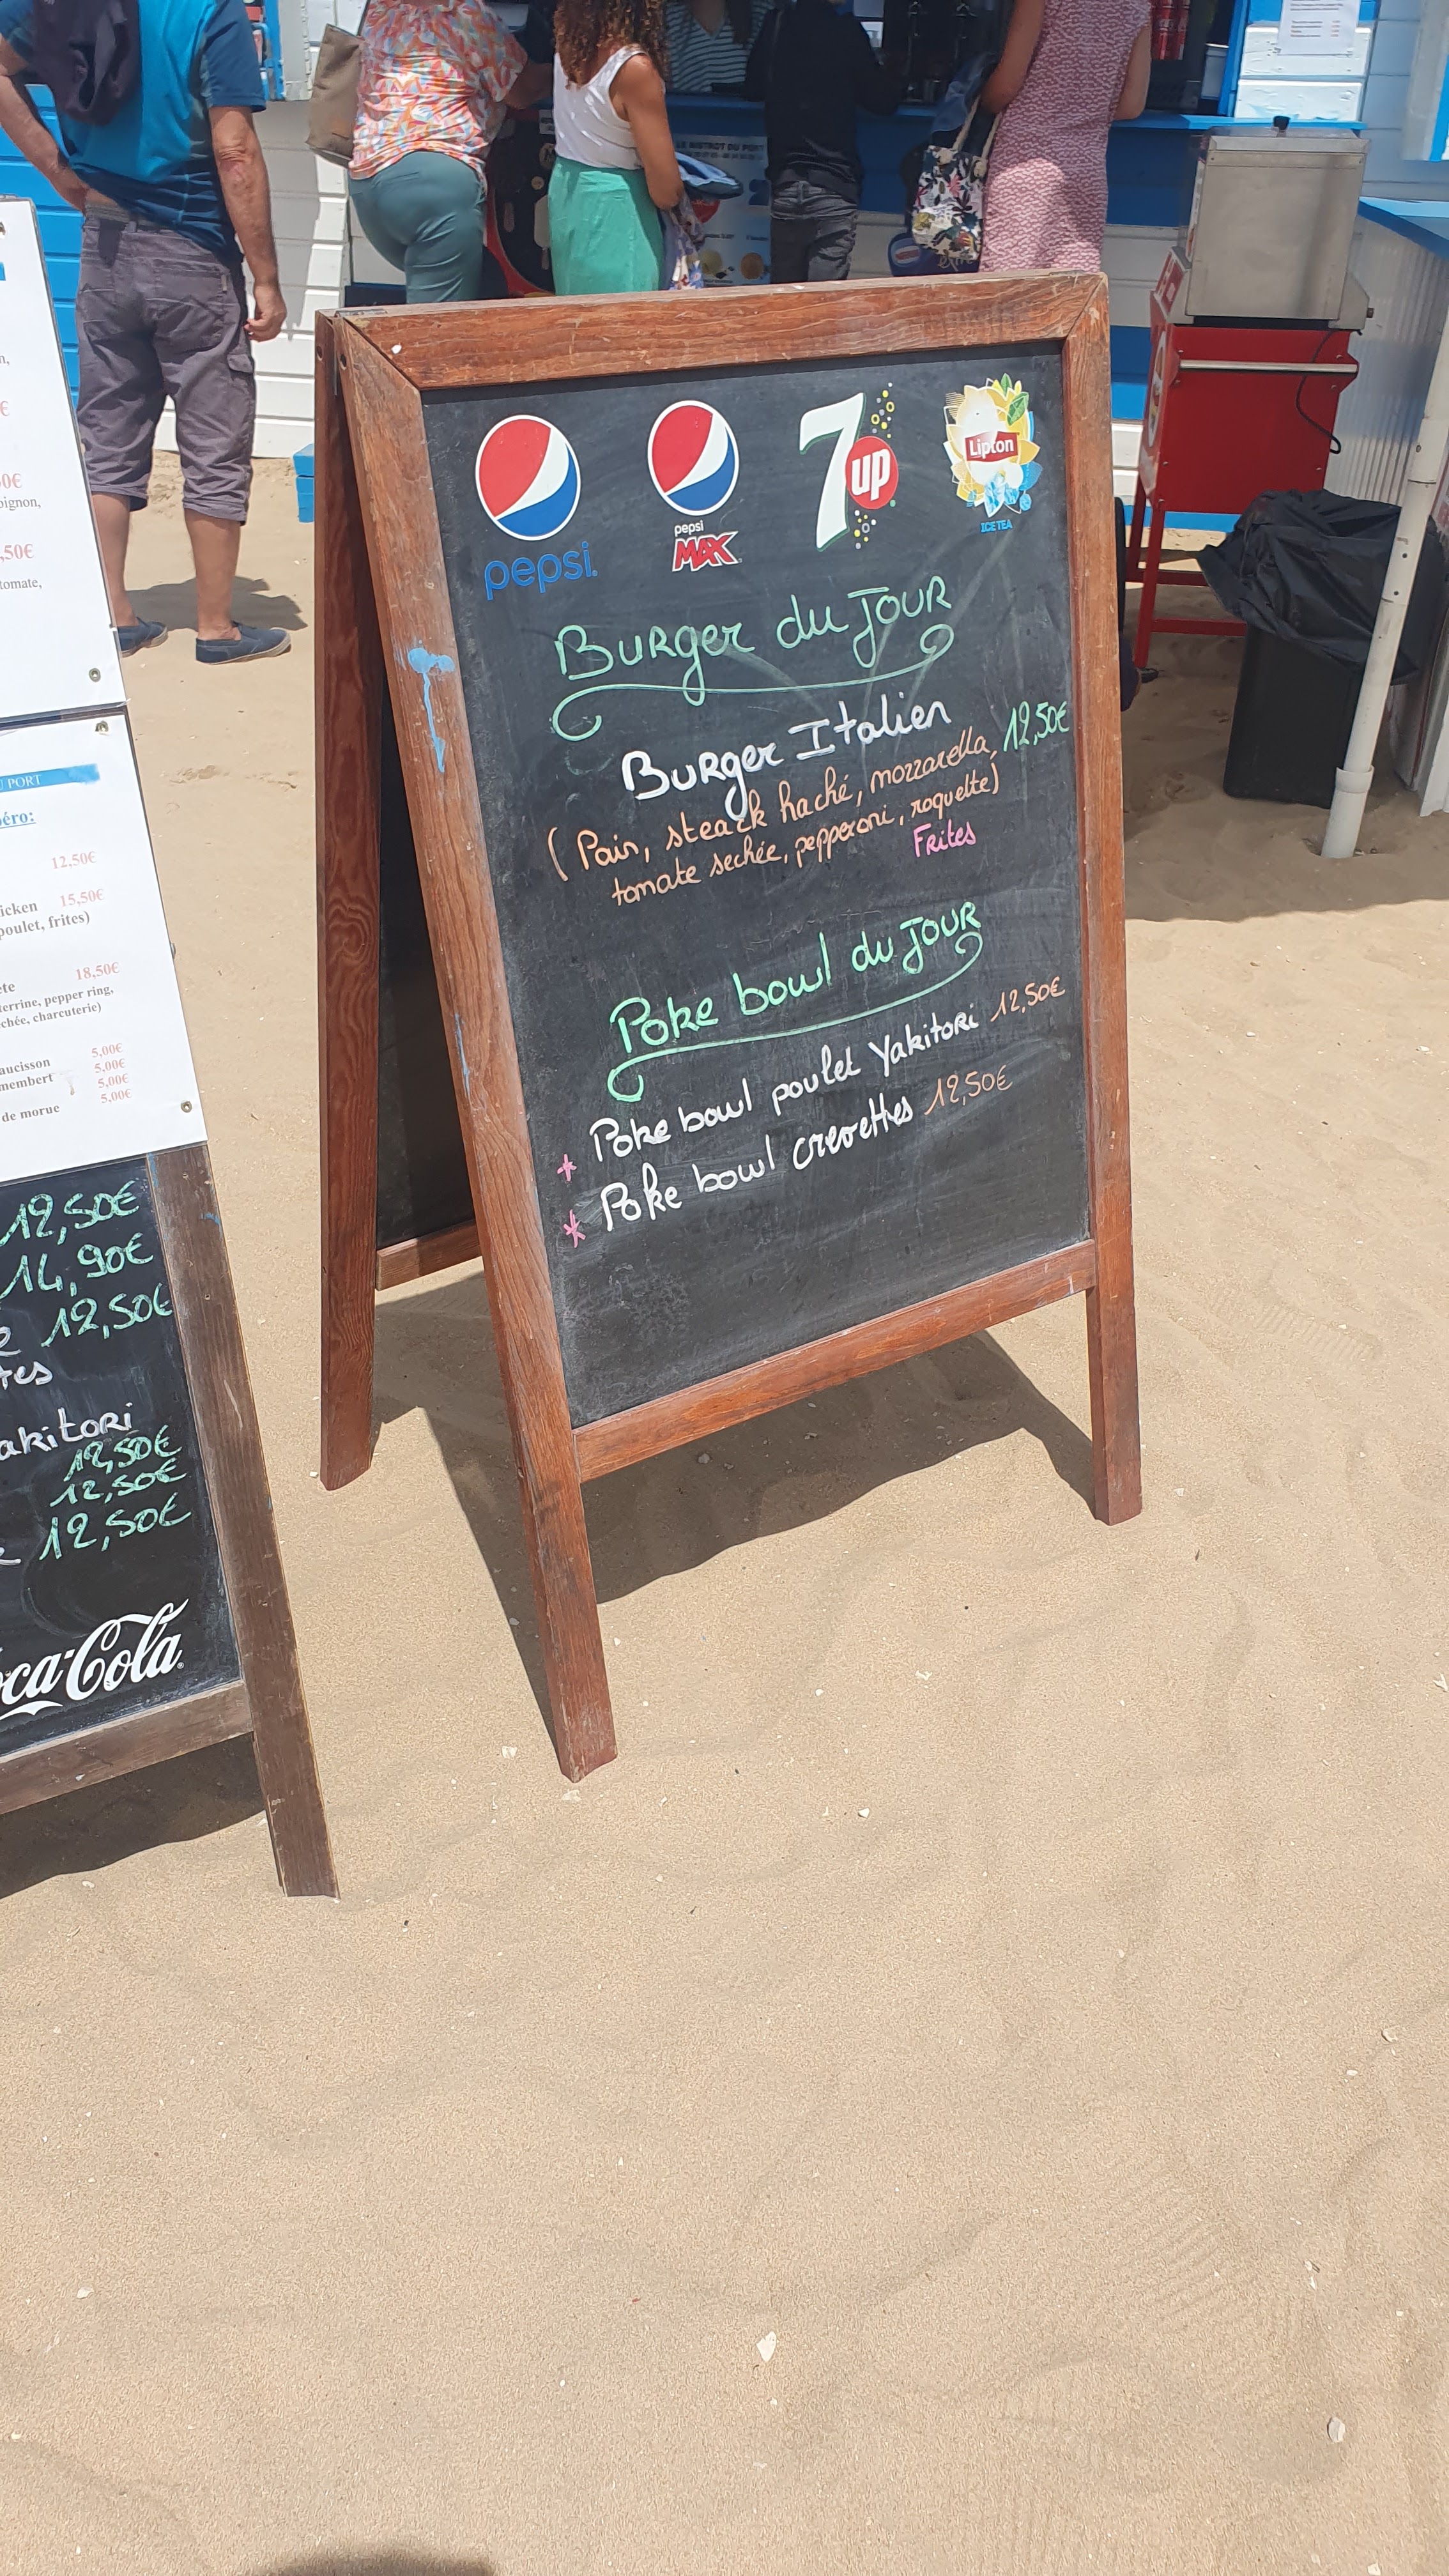 pepsi.
pepsi
MAX
7up
Lipton
ICE TEA
Burger du JOUR
Burger Italien 12,50€
(Pain, steack haché, mozzarella,
tomate sechée, pepperoni, roquette)
Frites
Poke bowl du JOUR
* Poke bowl poulet Yakitori 12,50€
* Poke bowl crevettes 12,50€
LE BISTROT DU PORT
PORT
12,50€
15,50€
poulet, frites)
18,50€
terrine, pepper ring,
charcuterie)
5,00€
5,00€
5,00€
de morue 5,00€
12,50€
14,90€
12,50€
akitori
12,50€
12,50€
12,50€
oca-Cola